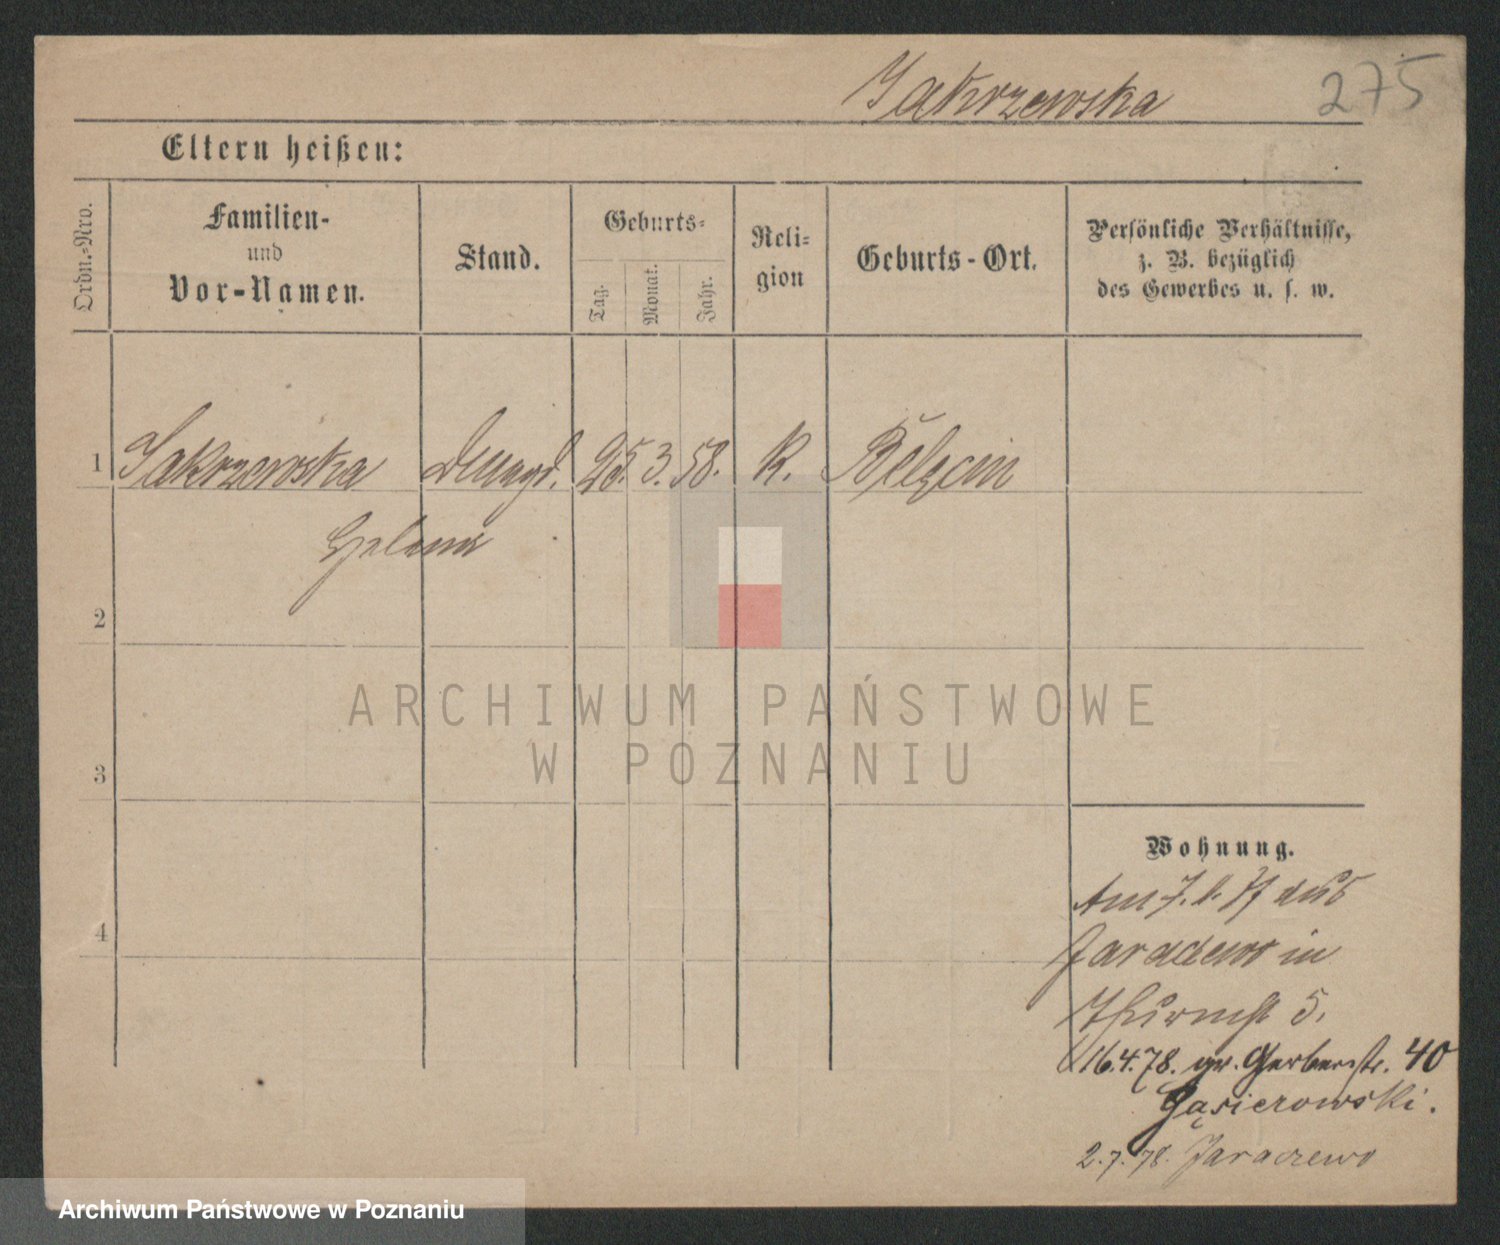 Zakrzewska 275
Eltern heißen:
Ordn.-Nro.
Familien-
und
Vor-Namen.
Stand.
Geburts-
Tag.
Monat.
Jahr.
Reli-
gion
Geburts-Ort.
Persönliche Verhältnisse,
z. B. bezüglich
des Gewerbes u. s. w.
1 Zakrzewska 25. 3. 58. K. Bĕlęcin
Helena
2
3
4
ARCHIWUM PAŃSTWOWE
W POZNANIU
Wohnung.
Am 7. aus
Jaraczewo in
Thurmst 5.
16.4.78. gr. Gerberstr. 40
Gąsierowski.
2.7.78. Jaraczewo
Archiwum Państwowe w Poznaniu